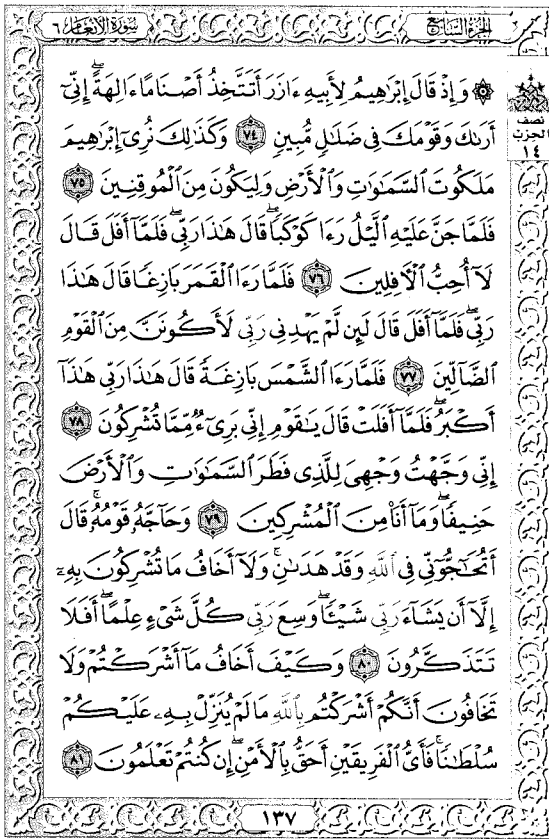 سُورَةُ الْأَنْعَامِ ٦
الجُزْءُ السَّابِعُ
نصف
الحزب
١٤
۞ وَإِذْ قَالَ إِبْرَاهِيمُ لِأَبِيهِ ءَازَرَ أَتَتَّخِذُ أَصْنَامًا ءَالِهَةً ۖ إِنِّىٓ
أَرَىٰكَ وَقَوْمَكَ فِى ضَلَـٰلٍ مُّبِينٍ ٧٤ وَكَذَٰلِكَ نُرِىٓ إِبْرَٰهِيمَ
مَلَكُوتَ السَّمَـٰوَٰتِ وَالْأَرْضِ وَلِيَكُونَ مِنَ الْمُوقِنِينَ ٧٥
فَلَمَّا جَنَّ عَلَيْهِ الَّيْلُ رَءَا كَوْكَبًا ۖ قَالَ هَـٰذَا رَبِّى ۖ فَلَمَّآ أَفَلَ قَالَ
لَآ أُحِبُّ الْـَٔافِلِينَ ٧٦ فَلَمَّا رَءَا الْقَمَرَ بَازِغًا قَالَ هَـٰذَا
رَبِّى ۖ فَلَمَّآ أَفَلَ قَالَ لَئِن لَّمْ يَهْدِنِى رَبِّى لَأَكُونَنَّ مِنَ الْقَوْمِ
الضَّآلِّينَ ٧٧ فَلَمَّا رَءَا الشَّمْسَ بَازِغَةً قَالَ هَـٰذَا رَبِّى هَـٰذَآ
أَكْبَرُ ۖ فَلَمَّآ أَفَلَتْ قَالَ يَـٰقَوْمِ إِنِّى بَرِىٓءٌ مِّمَّا تُشْرِكُونَ ٧٨
إِنِّى وَجَّهْتُ وَجْهِىَ لِلَّذِى فَطَرَ السَّمَـٰوَٰتِ وَالْأَرْضَ
حَنِيفًا ۖ وَمَآ أَنَا۠ مِنَ الْمُشْرِكِينَ ٧٩ وَحَآجَّهُۥ قَوْمُهُۥ ۚ قَالَ
أَتُحَـٰٓجُّوٓنِّى فِى اللَّهِ وَقَدْ هَدَىٰنِ ۚ وَلَآ أَخَافُ مَا تُشْرِكُونَ بِهِۦٓ
إِلَّآ أَن يَشَآءَ رَبِّى شَيْـًٔا ۗ وَسِعَ رَبِّى كُلَّ شَىْءٍ عِلْمًا ۗ أَفَلَا
تَتَذَكَّرُونَ ٨٠ وَكَيْفَ أَخَافُ مَآ أَشْرَكْتُمْ وَلَا
تَخَافُونَ أَنَّكُمْ أَشْرَكْتُم بِاللَّهِ مَا لَمْ يُنَزِّلْ بِهِۦ عَلَيْكُمْ
سُلْطَـٰنًا ۚ فَأَىُّ الْفَرِيقَيْنِ أَحَقُّ بِالْأَمْنِ ۖ إِن كُنتُمْ تَعْلَمُونَ ٨١
١٣٧